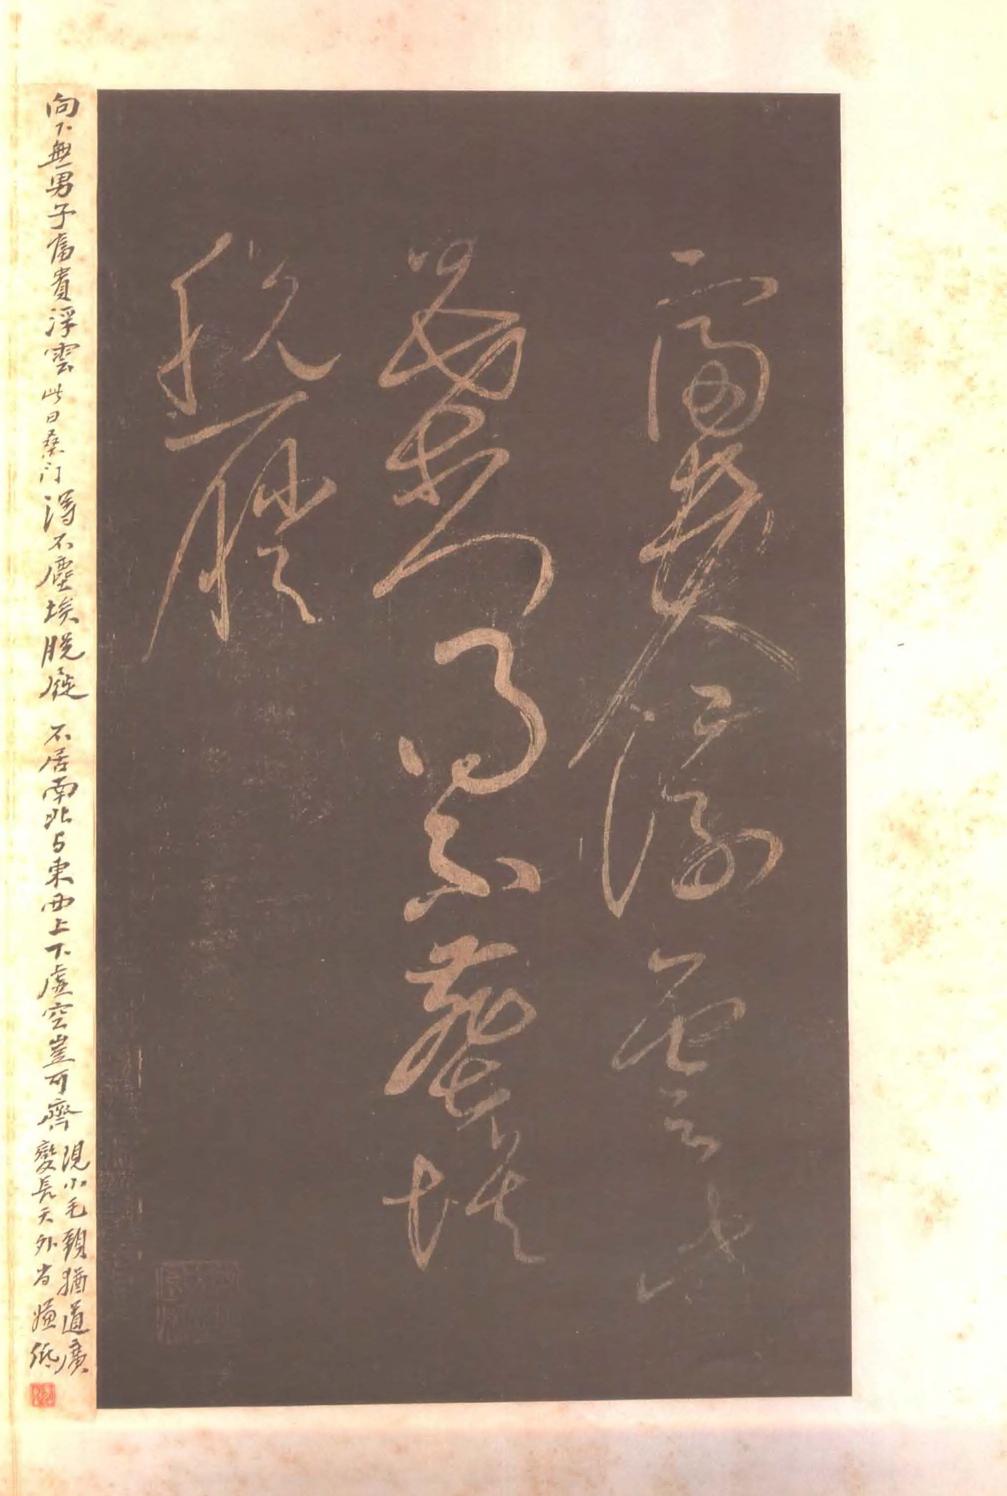 富貴浮雲此
日桑門得不塵埃
脱屣
向下無男子富貴浮雲此日桑门得不塵埃脱屣 不居南北与東西上下虛空豈可齊
現小毛頭猶道廣
變長天外尚嫌低